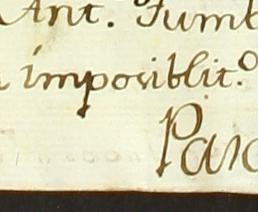 Ant. Tumb
imposiblit.o
Par